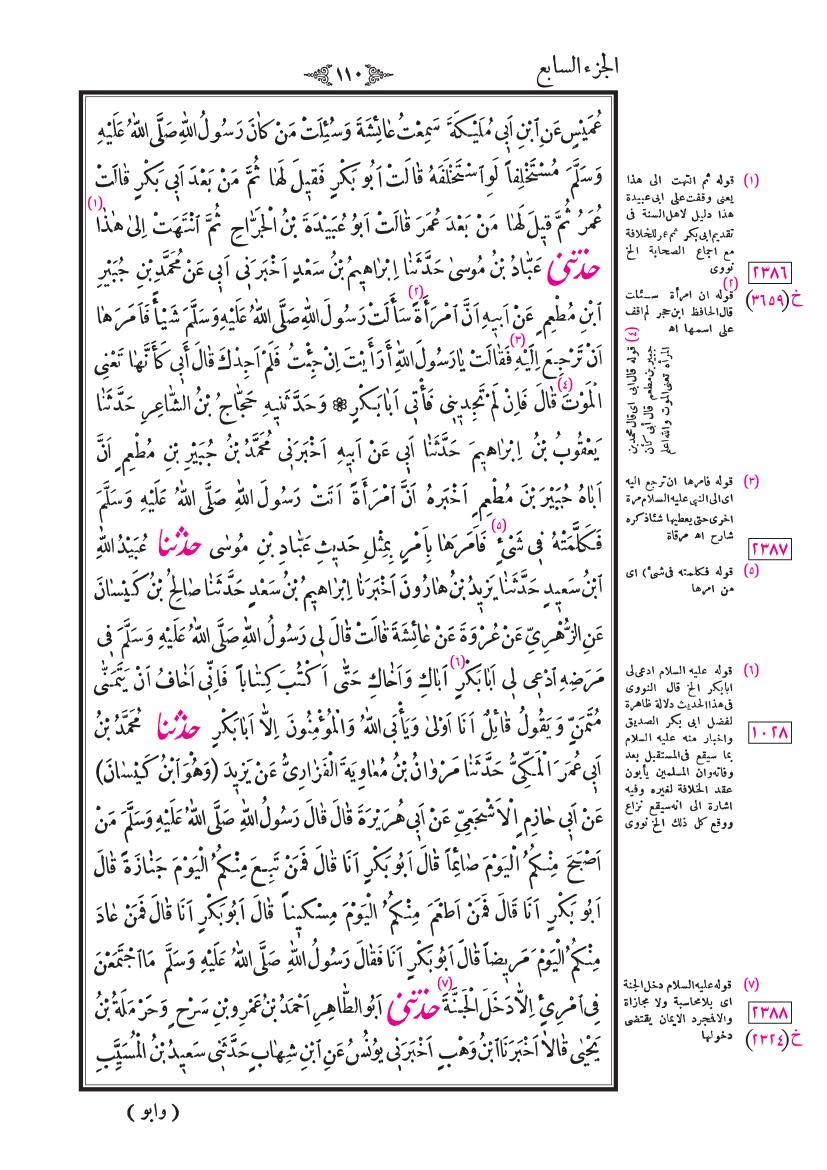 الجزء السابع
١١٠
عُمَيْسٍ عَنِ ابْنِ اَبِى مُلَيْكَةَ سَمِعْتُ عَائِشَةَ وَسُئِلَتْ مَنْ كَانَ رَسُولُ اللّٰهِ صَلَّى اللّٰهُ عَلَيْهِ
وَسَلَّمَ مُسْتَخْلِفاً لَوِ اسْتَخْلَفَهُ قَالَتْ اَبُو بَكْرٍ فَقِيلَ لَهَا ثُمَّ مَنْ بَعْدَ اَبِى بَكْرٍ قَالَتْ
عُمَرُ ثُمَّ قِيلَ لَهَا مَنْ بَعْدَ عُمَرَ قَالَتْ اَبُو عُبَيْدَةَ بْنُ الْجَرَّاحِ ثُمَّ انْتَهَتْ اِلىٰ هٰذَا (١)
حَدَّثَنِى عَبَّادُ بْنُ مُوسىٰ حَدَّثَنَا اِبْرَاهِيمُ بْنُ سَعْدٍ اَخْبَرَنِى اَبِى عَنْ مُحَمَّدِ بْنِ جُبَيْرِ
ابْنِ مُطْعِمٍ عَنْ اَبِيهِ اَنَّ امْرَأَةً (٢) سَأَلَتْ رَسُولَ اللّٰهِ صَلَّى اللّٰهُ عَلَيْهِ وَسَلَّمَ شَيْأً فَاَمَرَهَا
اَنْ تَرْجِعَ اِلَيْهِ (٣) فَقَالَتْ يَا رَسُولَ اللّٰهِ أَرَأَيْتَ اِنْ جِئْتُ فَلَمْ اَجِدْكَ قَالَ أَبِى كَأَنَّهَا تَعْنِى
الْمَوْتَ (٤) قَالَ فَاِنْ لَمْ تَجِدِينِى فَأْتِى اَبَا بَكْرٍ ❁ وَحَدَّثَنِيهِ حَجَّاجُ بْنُ الشَّاعِرِ حَدَّثَنَا
يَعْقُوبُ بْنُ اِبْرَاهِيمَ حَدَّثَنَا اَبِى عَنْ اَبِيهِ اَخْبَرَنِى مُحَمَّدُ بْنُ جُبَيْرِ بْنِ مُطْعِمٍ اَنَّ
اَبَاهُ جُبَيْرَ بْنَ مُطْعِمٍ اَخْبَرَهُ اَنَّ امْرَأَةً اَتَتْ رَسُولَ اللّٰهِ صَلَّى اللّٰهُ عَلَيْهِ وَسَلَّمَ
فَكَلَّمَتْهُ فِى شَىْءٍ (٥) فَاَمَرَهَا بِاَمْرٍ بِمِثْلِ حَدِيثِ عَبَّادِ بْنِ مُوسىٰ حَدَّثَنَا عُبَيْدُ اللّٰهِ
ابْنُ سَعِيدٍ حَدَّثَنَا يَزِيدُ بْنُ هَارُونَ اَخْبَرَنَا اِبْرَاهِيمُ بْنُ سَعْدٍ حَدَّثَنَا صَالِحُ بْنُ كَيْسَانَ
عَنِ الزُّهْرِىِّ عَنْ عُرْوَةَ عَنْ عَائِشَةَ قَالَتْ قَالَ لِى رَسُولُ اللّٰهِ صَلَّى اللّٰهُ عَلَيْهِ وَسَلَّمَ فِى
مَرَضِهِ ادْعِى لِى اَبَا بَكْرٍ (٦) اَبَاكِ وَاَخَاكِ حَتَّى اَكْتُبَ كِتَاباً فَاِنِّى اَخَافُ اَنْ يَتَمَنَّى
مُتَمَنٍّ وَيَقُولَ قَائِلٌ اَنَا اَوْلىٰ وَيَأْبَى اللّٰهُ وَالْمُؤْمِنُونَ اِلَّا اَبَا بَكْرٍ حَدَّثَنَا مُحَمَّدُ بْنُ
اَبِى عُمَرَ الْمَكِّىُّ حَدَّثَنَا مَرْوَانُ بْنُ مُعَاوِيَةَ الْفَزَارِىُّ عَنْ يَزِيدَ (وَهُوَ ابْنُ كَيْسَانَ)
عَنْ اَبِى حَازِمٍ الْاَشْجَعِىِّ عَنْ اَبِى هُرَيْرَةَ قَالَ قَالَ رَسُولُ اللّٰهِ صَلَّى اللّٰهُ عَلَيْهِ وَسَلَّمَ مَنْ
اَصْبَحَ مِنْكُمُ الْيَوْمَ صَائِماً قَالَ اَبُو بَكْرٍ اَنَا قَالَ فَمَنْ تَبِعَ مِنْكُمُ الْيَوْمَ جَنَازَةً قَالَ
اَبُو بَكْرٍ اَنَا قَالَ فَمَنْ اَطْعَمَ مِنْكُمُ الْيَوْمَ مِسْكِيناً قَالَ اَبُو بَكْرٍ اَنَا قَالَ فَمَنْ عَادَ
مِنْكُمُ الْيَوْمَ مَرِيضاً قَالَ اَبُو بَكْرٍ اَنَا فَقَالَ رَسُولُ اللّٰهِ صَلَّى اللّٰهُ عَلَيْهِ وَسَلَّمَ مَا اجْتَمَعْنَ
فِى امْرِئٍ اِلَّا دَخَلَ الْجَنَّةَ (٧) حَدَّثَنِى اَبُو الطَّاهِرِ اَحْمَدُ بْنُ عَمْرِو بْنِ سَرْحٍ وَحَرْمَلَةُ بْنُ
يَحْيىٰ قَالَا اَخْبَرَنَا ابْنُ وَهْبٍ اَخْبَرَنِى يُونُسُ عَنِ ابْنِ شِهَابٍ حَدَّثَنِى سَعِيدُ بْنُ الْمُسَيَّبِ
(١) قوله ثم انتهت الى هذا
يعنى وقفت على ابى عبيدة
هذا دليل لاهل السنة فى
تقديم ابى بكر ثم عمر للخلافة
مع اجماع الصحابة الخ
نووى
٢٣٨٦
خ (٣٦٥٩)
(٢) قوله ان امرأة سئلت
قال الحافظ ابن حجر لم اقف
على اسمها اه
(٤) قوله قال ابى اى قال محمد بن
جبير بن مطعم قال أبى كأن
المرأة تعنى الموت والله اعلم
(٣) قوله فامرها ان ترجع اليه
اى الى النبى عليه السلام مرة
اخرى حتى يعطيها شئاذكره
شارح اه مرقاة
٢٣٨٧
(٥) قوله فكلمته فى شئ) اى
من امرها
(٦) قوله عليه السلام ادعى لى
ابا بكر الخ قال النووى
فى هذا الحديث دلالة ظاهرة
لفضل ابى بكر الصديق
واخبار منه عليه السلام
بما سيقع فى المستقبل بعد
وفاته وان المسلمين يأبون
عقد الخلافة لغيره وفيه
اشارة الى انه سيقع نزاع
ووقع كل ذلك الخ نووى
١٠٢٨
(٧) قوله عليه السلام دخل الجنة
اى بلا محاسبة ولا مجازاة
والا فمجرد الايمان يقتضى
دخولها
٢٣٨٨
خ (٢٣٢٤)
( وابو )